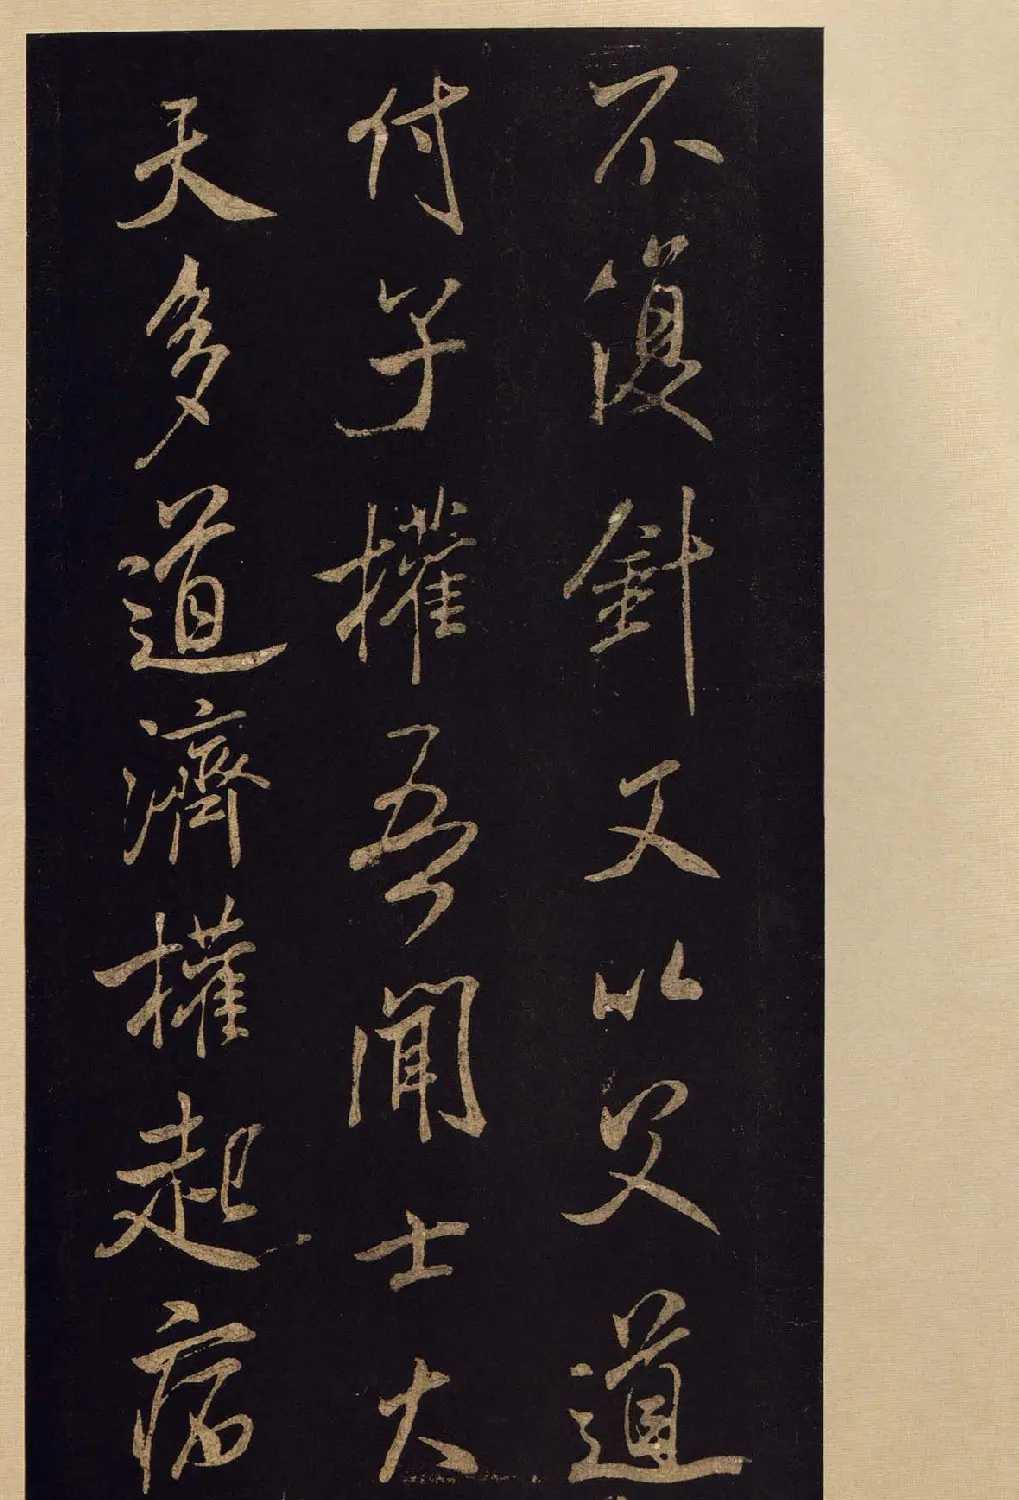 不復針又以父道
付子權吾聞士大
夫多道濟權起病